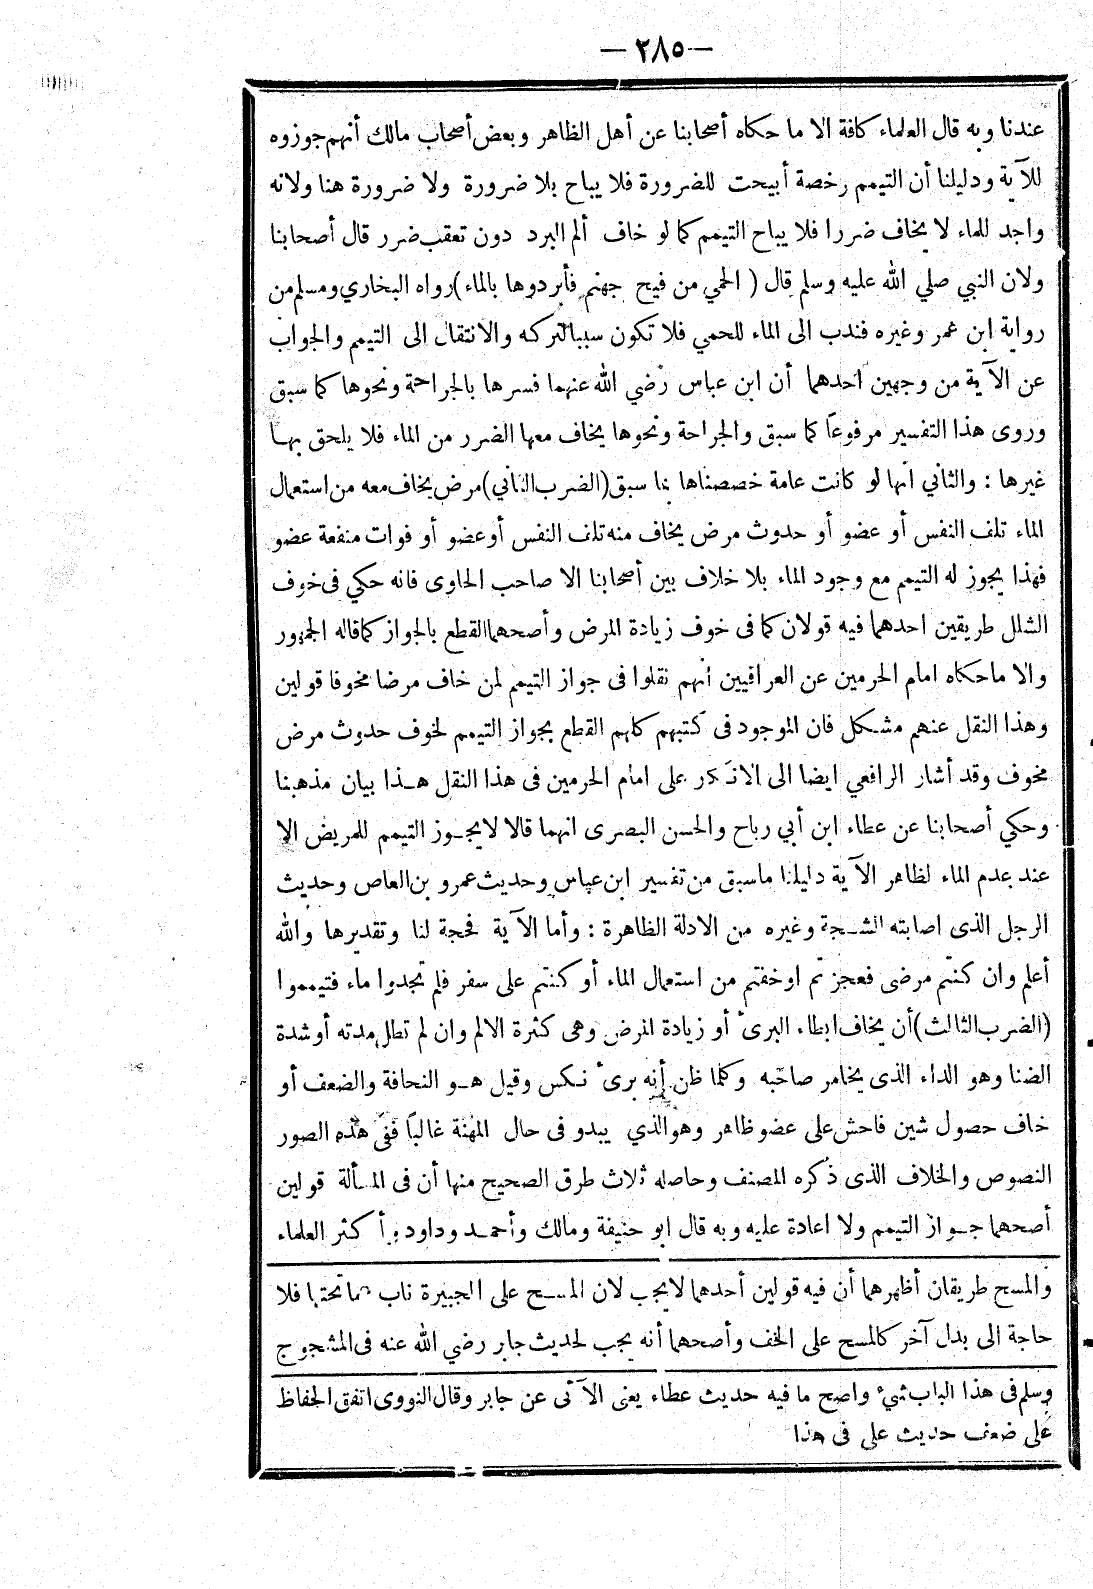 — ٢٨٥ —
عندنا وبه قال العلماء كافة الا ما حكاه أصحابنا عن أهل الظاهر وبعض أصحاب مالك أنهم جوزوه
للآية ودليلنا أن التيمم رخصة أبيحت للضرورة فلا يباح بلا ضرورة ولا ضرورة هنا ولانه
واجد للماء لا يخاف ضررا فلا يباح التيمم كما لو خاف ألم البرد دون تعقب ضرر قال أصحابنا
ولان النبي صلي الله عليه وسلم قال ( الحمي من فيح جهنم فأبردوها بالماء ) رواه البخاري ومسلم من
رواية ابن عمر وغيره فندب الى الماء للحمي فلا تكون سببا لتركه والانتقال الى التيمم والجواب
عن الآية من وجهين أحدهما أن ابن عباس رضي الله عنهما فسرها بالجراحة ونحوها كما سبق
وروى هذا التفسير مرفوعاً كما سبق والجراحة ونحوها يخاف معها الضرر من الماء فلا يلحق بها
غيرها : والثاني انها لو كانت عامة خصصناها بما سبق (الضرب الثاني) مرض يخاف معه من استعمال
الماء تلف النفس أو عضو أو حدوث مرض يخاف منه تلف النفس أو عضو أو فوات منفعة عضو
فهذا يجوز له التيمم مع وجود الماء بلا خلاف بين أصحابنا الا صاحب الحاوى فانه حكي فى خوف
الشلل طريقين احدهما فيه قولان كما فى خوف زيادة المرض وأصحهما القطع بالجواز كما قاله الجمهور
والا ما حكاه امام الحرمين عن العراقيين أنهم نقلوا فى جواز التيمم لمن خاف مرضا مخوفا قولين
وهذا النقل عنهم مشكل فان الموجود فى كتبهم كلهم القطع بجواز التيمم لخوف حدوث مرض
مخوف وقد أشار الرافعي ايضا الى الانكار على امام الحرمين فى هذا النقل هذا بيان مذهبنا
وحكي أصحابنا عن عطاء ابن أبي رباح والحسن البصرى انهما قالا لا يجوز التيمم للمريض الا
عند عدم الماء لظاهر الآية دليلنا ما سبق من تفسير ابن عباس وحديث عمرو بن العاص وحديث
الرجل الذى اصابته الشجة وغيره من الادلة الظاهرة : وأما الآية فحجة لنا وتقديرها والله
أعلم وان كنتم مرضى فعجزتم او خفتم من استعمال الماء أو كنتم على سفر فلم تجدوا ماء فتيمموا
(الضرب الثالث) أن يخاف ابطاء البرئ أو زيادة المرض وهى كثرة الالم وان لم تطل مدته أو شدة
الضنا وهو الداء الذى يخامر صاحبه وكلما ظن أنه برئ نكس وقيل هو النحافة والضعف أو
خاف حصول شين فاحش على عضو ظاهر وهو الذي يبدو فى حال المهنة غالباً ففى هذه الصور
النصوص والخلاف الذى ذكره المصنف وحاصله ثلاث طرق الصحيح منها أن فى المسألة قولين
أصحهما جواز التيمم ولا اعادة عليه وبه قال ابو حنيفة ومالك وأحمد وداود وأكثر العلماء
والمسح طريقان أظهرهما أن فيه قولين أحدهما لا يجب لان المسح على الجبيرة ناب عما تحتها فلا
حاجة الى بدل آخر كالمسح على الخف وأصحهما أنه يجب لحديث جابر رضي الله عنه فى المشجوج
وسلم فى هذا الباب شئ واصح ما فيه حديث عطاء يعنى الآتى عن جابر وقال النووى اتفق الحفاظ
على ضعف حديث على فى هذا